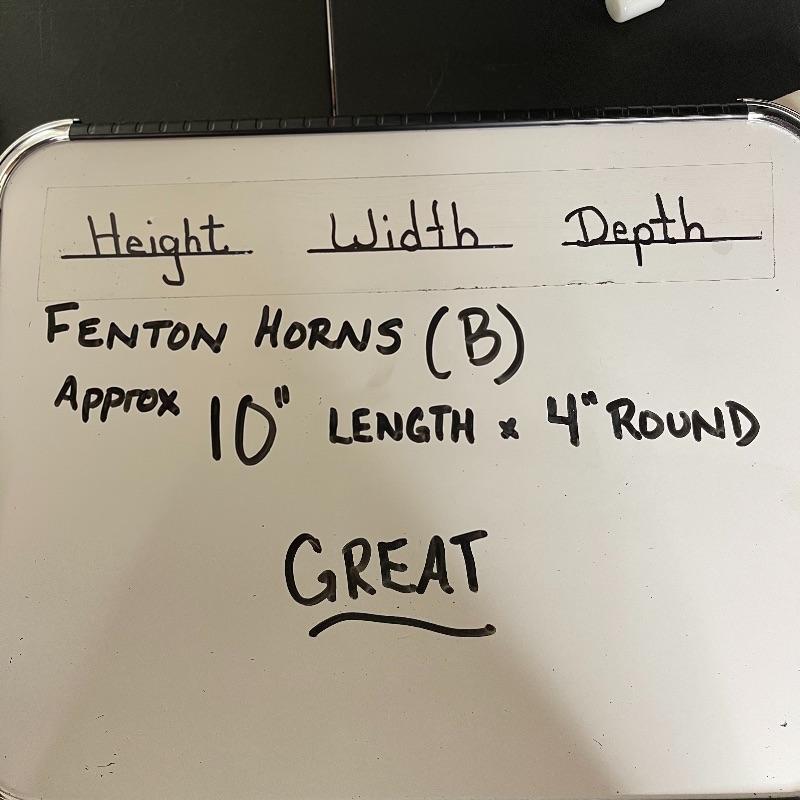 Height Width Depth
FENTON HORNS (B)
Approx 10" LENGTH x 4" ROUND
GREAT